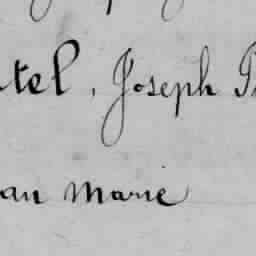 tel, Joseph
an Marie